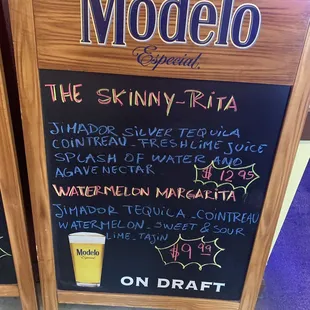 Modelo
Especial
THE SKINNY-RITA
JIMADOR SILVER TEQUILA
COINTREAU - FRESH LIME JUICE
SPLASH OF WATER AND
AGAVE NECTAR
$12.95
WATERMELON MARGARITA
JIMADOR TEQUILA - COINTREAU
WATERMELON - SWEET & SOUR
LIME - TAJIN
$9.99
Modelo
Especial
ON DRAFT